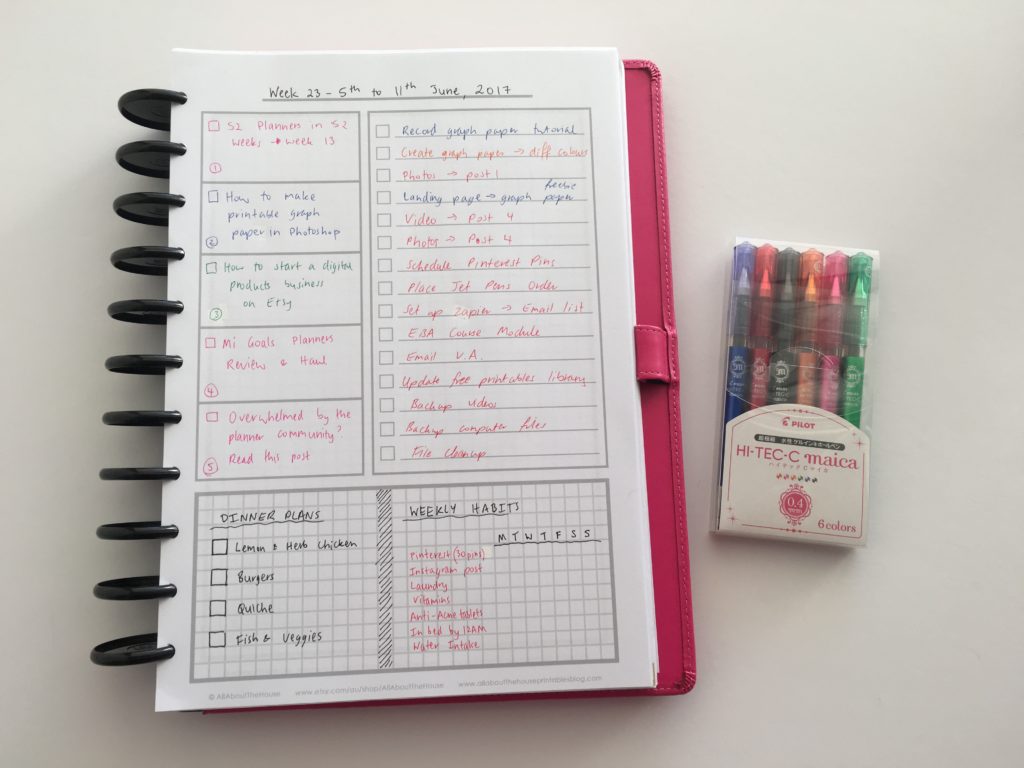 Week 23 - 5th to 11th June, 2017
52 Planners in 52
weeks → week 13
1
How to make
printable graph
paper in Photoshop
2
How to start a digital
products business
on Etsy
3
Mi Goals Planners
Review & Haul
4
Overwhelmed by the
planner community?
Read this post
5
Record graph paper tutorial
Create graph paper → diff colours
Photos → post 1
freebie
Landing page → graph paper
Video → Post 4
Photos → Post 4
Schedule Pinterest Pins
Place Jet Pens Order
Set up Zapier → Email list
EBA Course Module
Email V.A.
Update free printables library
Backup videos
Backup computer files
File cleanup
DINNER PLANS
Lemon & Herb Chicken
Burgers
Quiche
Fish & Veggies
WEEKLY HABITS
M T W T F S S
Pinterest (30 pins)
Instagram post
Laundry
Vitamins
Anti-Acne tablets
In bed by 12AM
Water Intake
© AllAboutTheHouse www.etsy.com/au/shop/AllAboutTheHouse www.allaboutthehouseprintablesblog.com
PILOT
超極細 水性ゲルインキボールペン
HI-TEC-C maica
ハイテックCマイカ
0.4
6 colors